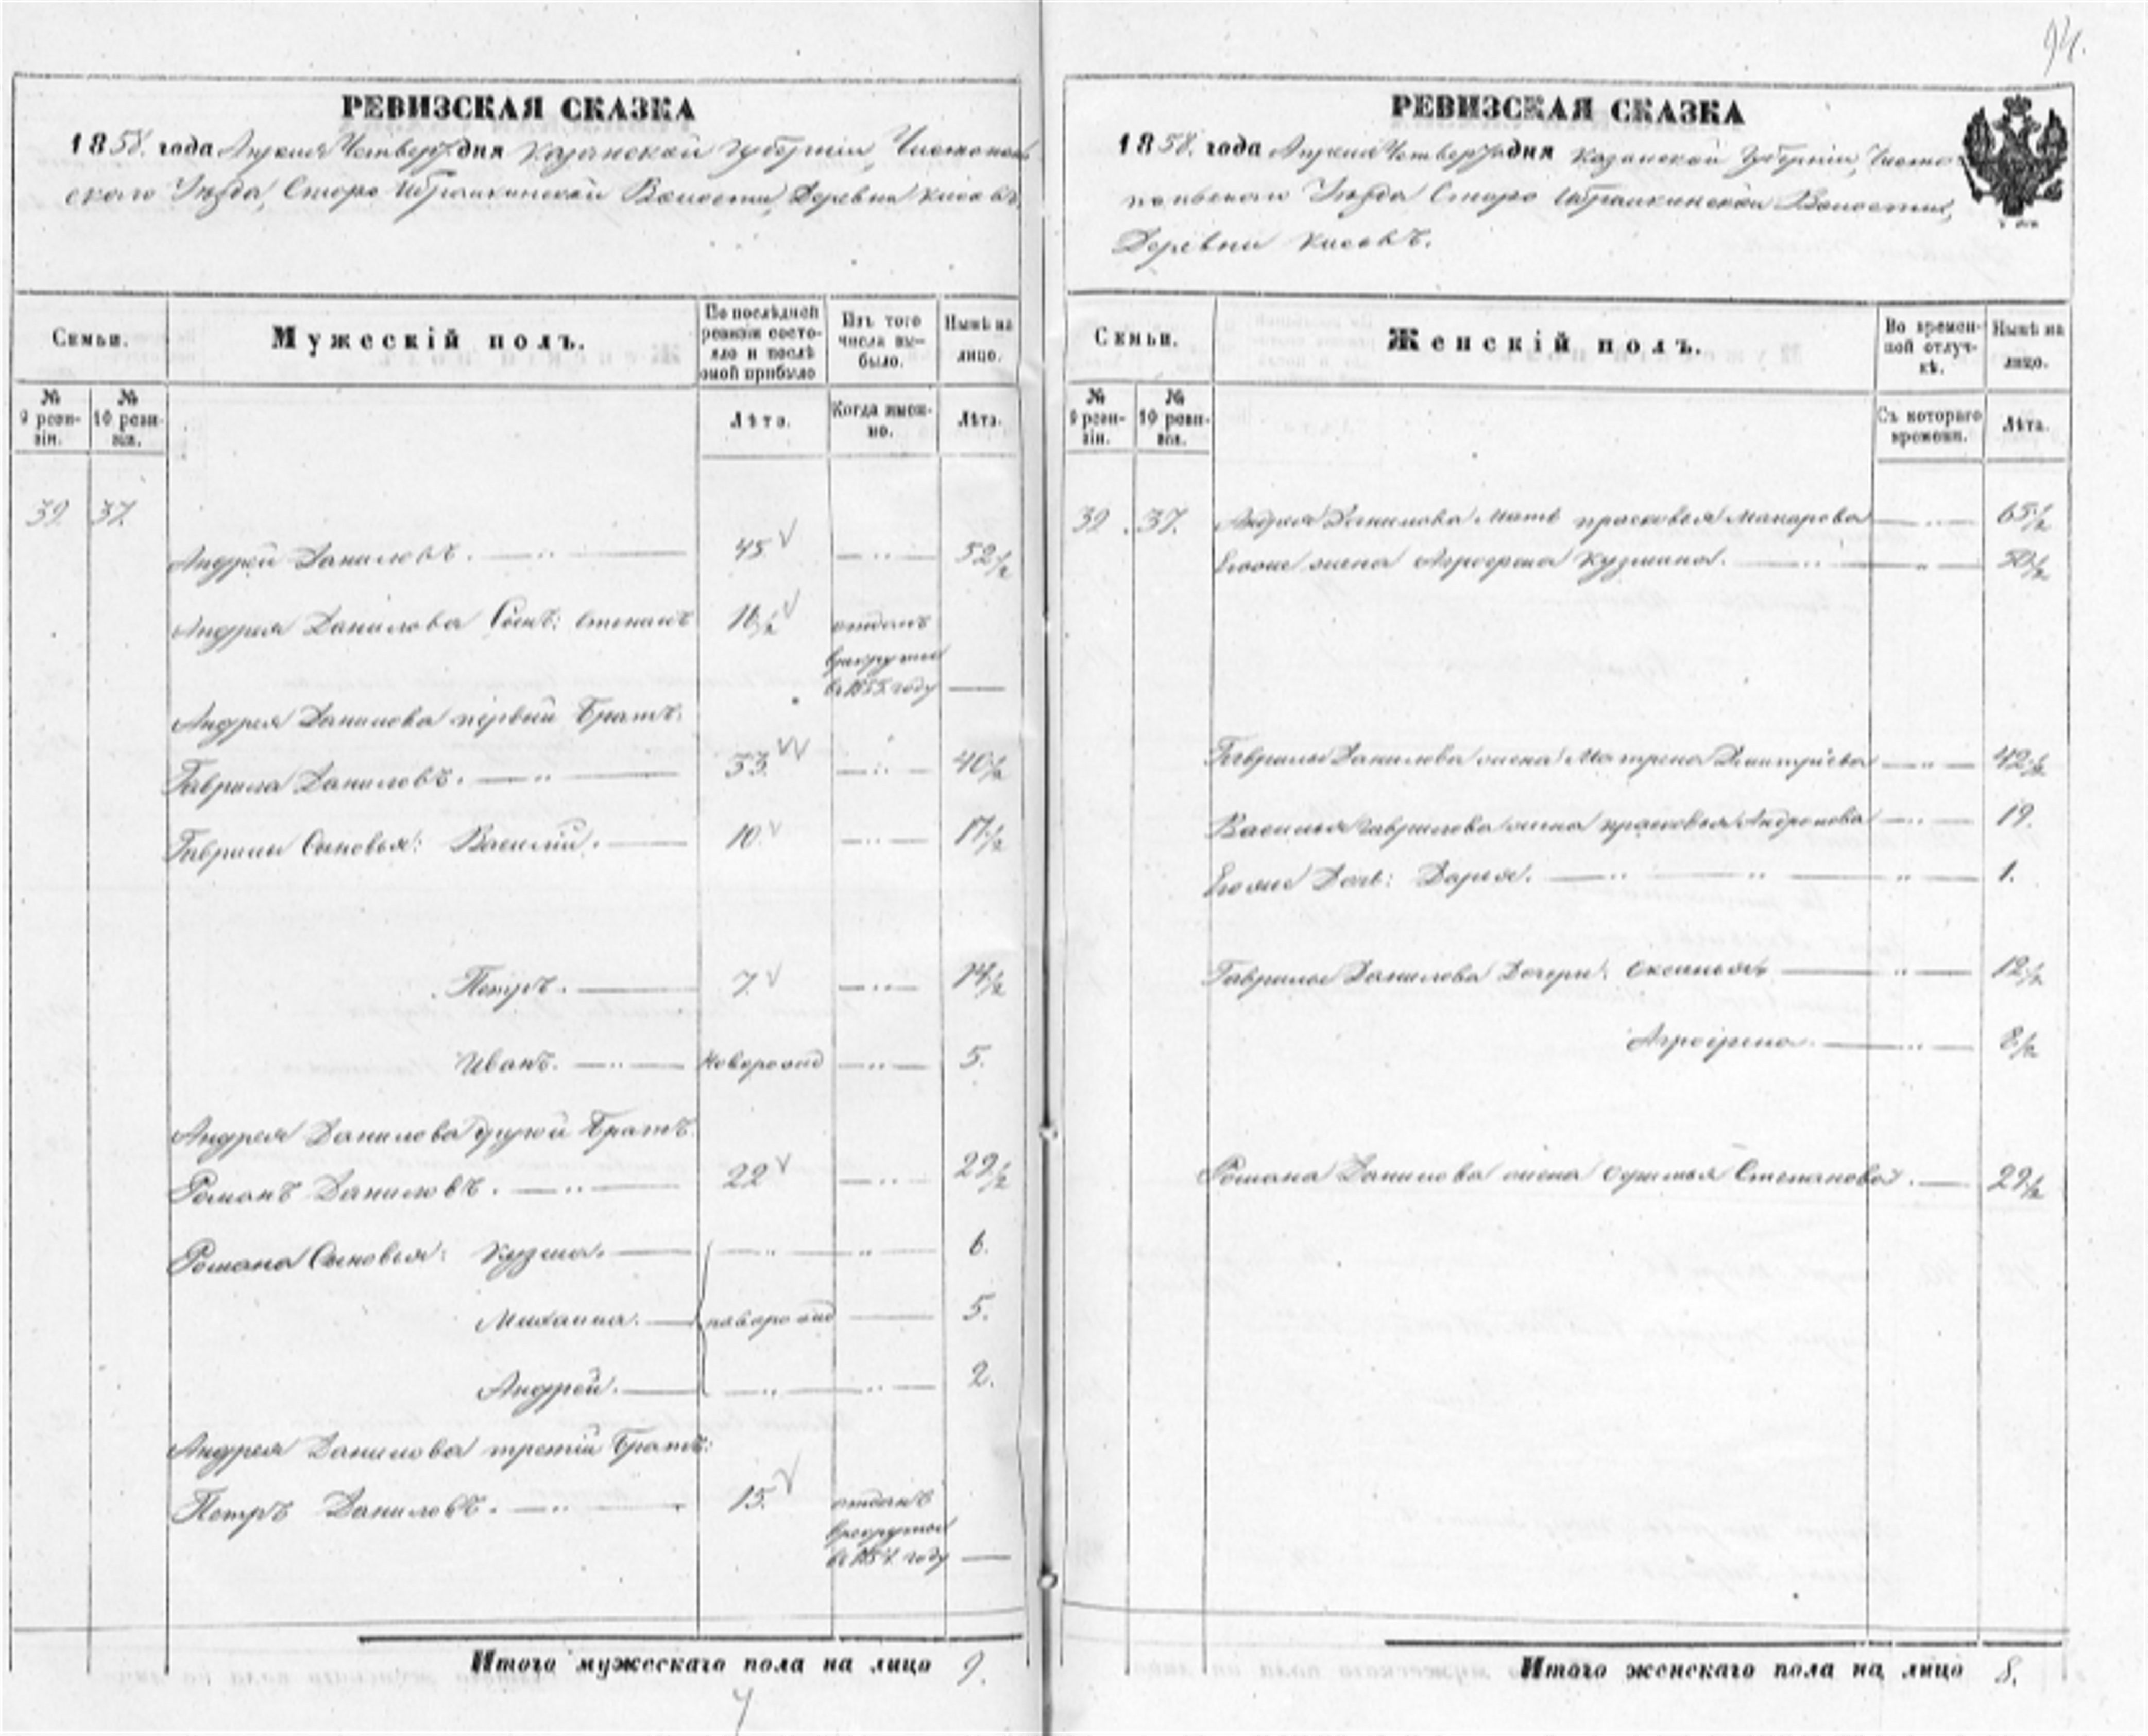 94.
РЕВИЗСКАЯ СКАЗКА
1858. года Апреля Четвертаго дня Казанской Губерніи, Чистополь
скаго Уезда, Старо Ибрайкинской Волости, Деревни Кисовъ.
Семьи.
Мужескій полъ.
По послѣдней ревизіи состояло и послѣ оной прибыло
Изъ того числа вы-было.
Нынѣ на лицо.
№ 9 реви-зіи.
№ 10 реви-зіи.
Лѣта.
Когда имен-но.
Лѣта.
39. 37.
Андрей Даниловъ. 45 52 1/2
Андрея Данилова Сынъ: Степанъ 16 1/2 отданъ
в рекруты
в 1855. году
Андрея Данилова первый Братъ:
Гаврила Даниловъ. 33. 40 1/2
Гаврилы Сыновья: Василій. 10. 17 1/2
Петръ. 7. 14 1/2
Иванъ. Новорожд 5.
Андрея Данилова другой Братъ
Романъ Даниловъ. 22 29 1/2
Романа Сыновья: Кузма. 6.
Михаила. новорожд 5.
Андрей. 2.
Андрея Данилова третій Братъ:
Петръ Даниловъ. 15. отданъ
в рекруты
в 1854. году
Итого мужескаго пола на лицо 9.
РЕВИЗСКАЯ СКАЗКА
1858. года Апреля Четвертаго дня Казанской Губерніи, Чисто-
польскаго Уезда Старо Ибрайкинской Волости,
Деревни Кисовъ.
Семьи.
Женскій полъ.
Во времен-ной отлуч-кѣ.
Нынѣ на лицо.
№ 9 реви-зіи.
№ 10 реви-зіи.
Съ котораго времени.
Лѣта.
39. 37. Андрея Данилова Мать прасковья Макарова 65 1/2
Егоже жена Агрофена Кузмина. 50 1/2
Гаврилы Данилова жена Матрена Дмитріева 42 1/2
Василья Гаврилова жена прасковья Андронова 19.
Егоже Дочь: Дарья. 1.
Гаврилы Данилова Дочери: Оксинья 12 1/2
Агрофена. 8 1/2
Романа Данилова жена Степанова. 29 1/2
Итого женскаго пола на лицо 8.